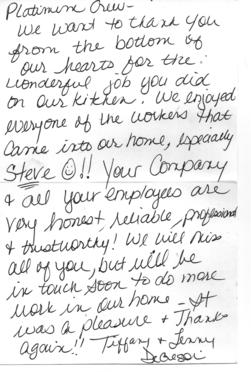 Platinum Crew-
We want to thank you
from the bottom of
our hearts for the
wonderful job you did
on our kitchen. We enjoyed
everyone of the workers that
came into our home, especially
Steve ☺!! Your Company
& all your employees are
very honest, reliable, professional
& trustworthy! We will miss
all of you, but will be
in touch soon to do more
work in our home - It
was a pleasure & Thanks
again!! Tiffany &